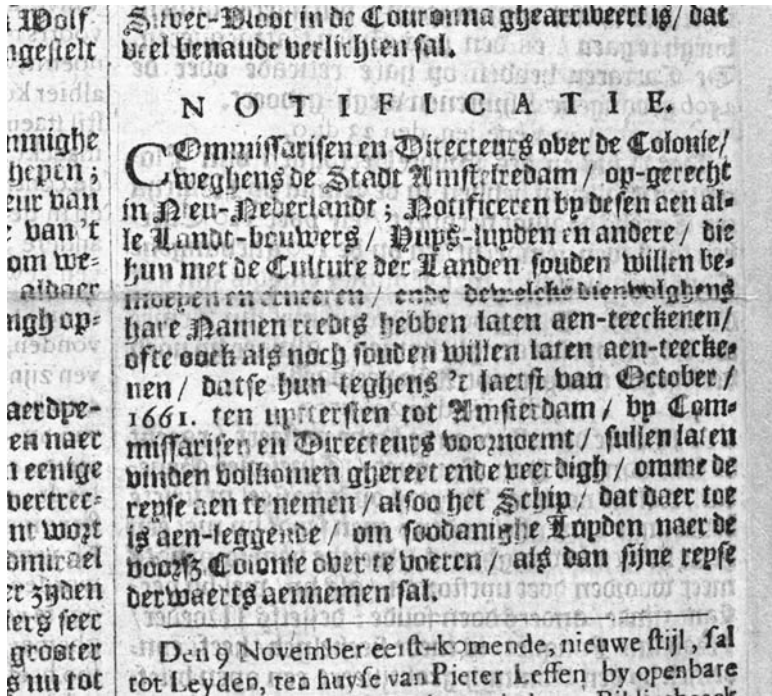 Wolf
ngestelt
mmighe
hepen;
eur van
van 't
om we-
aldaer
ngh op-
aerdpe-
en naer
n eenige
vertrec-
nt wort
dmirael
er zyden
ters seer
grooter
s nu tot
Silver-Vloot in de Couronna ghearriveert is / dat
veel benaude verlichten sal.
NOTIFICATIE.
COmmissarisen en Directeurs over de Colonie /
weghens de Stadt Amstelredam / op-gerecht
in Nieu-Nederlandt; Notificeren by desen aen al-
le Landt-bouwers / Huys-luyden en andere / die
hun met de Culture der Landen souden willen be-
moeyen en erneeren / ende dewelcke dienvolghens
hare Namen reedts hebben laten aen-teeckenen /
ofte oock als noch souden willen laten aen-teecke-
nen / datse hun teghens 't laetst van October /
1661. ten uyttersten tot Amsterdam / by Com-
missarisen en Directeurs voornoemt / sullen laten
vinden volkomen ghereet ende veerdigh / omme de
reyse aen te nemen / alsoo het Schip / dat daer toe
is aen-leggende / om soodanighe Luyden naer de
voorsz Colonie over te voeren / als dan sijne reyse
derwaerts aennemen sal.
Den 9 November eerst-komende, nieuwe stijl, sal
tot Leyden, ten huyse van Pieter Leffen by openbare